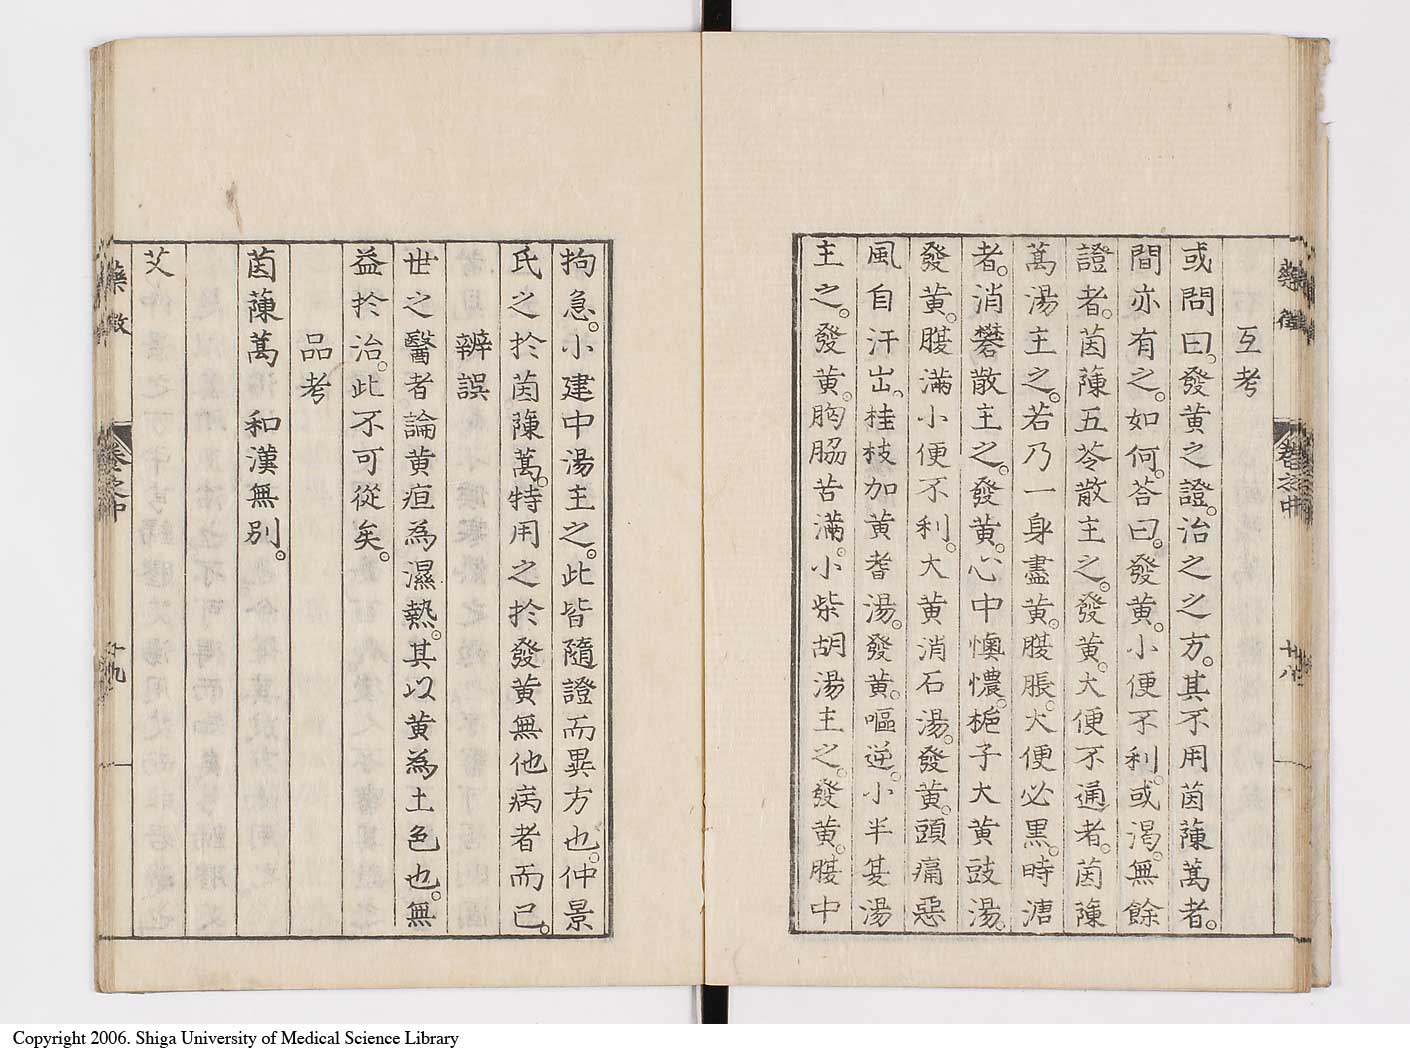 藥徵
卷之中
十八
互考
或問曰。發黄之證。治之之方。其不用茵蔯蒿者。
間亦有之。如何。荅曰。發黄。小便不利。或渴。無餘
證者。茵蔯五苓散主之。發黄。大便不通者。茵蔯
蒿湯主之。若乃一身盡黄。腹脹。大便必黒。時溏
者。消礬散主之。發黄。心中懊憹。梔子大黄豉湯。
發黄。腹滿小便不利。大黄消石湯。發黄。頭痛惡
風自汗出。桂枝加黄耆湯。發黄。嘔逆。小半夏湯
主之。發黄。胸脇苦滿。小柴胡湯主之。發黄。腹中
拘急。小建中湯主之。此皆隨證而異方也。仲景
氏之於茵蔯蒿。特用之於發黄無他病者而已。
辨誤
世之醫者論黄疸為濕熱。其以黄為土色也。無
益於治。此不可從矣。
品考
茵蔯蒿 和漢無別。
艾
藥徵
卷之中
十九
Copyright 2006. Shiga University of Medical Science Library